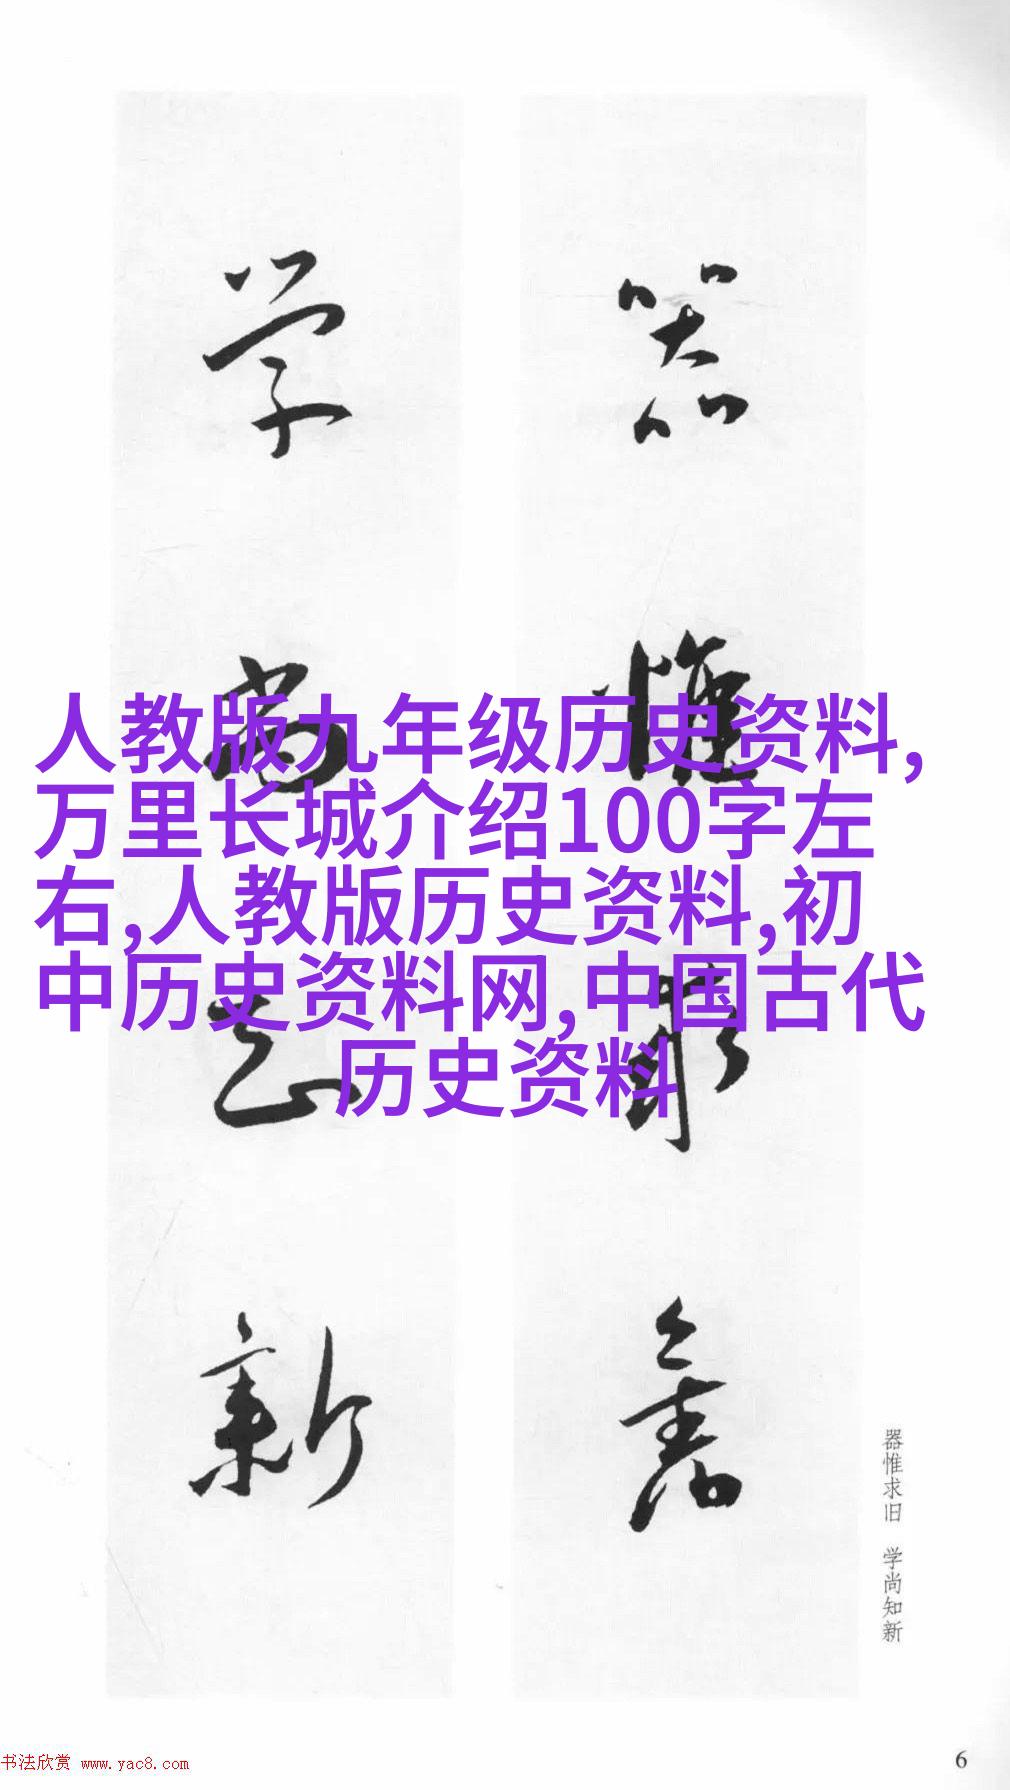 人教版九年级历史资料,
万里长城介绍100字左
右,人教版历史资料,初
中历史资料网,中国古代
历史资料
器惟求旧
学尚知新
器惟求旧 学尚知新
书法欣赏 www.yac8.com
6